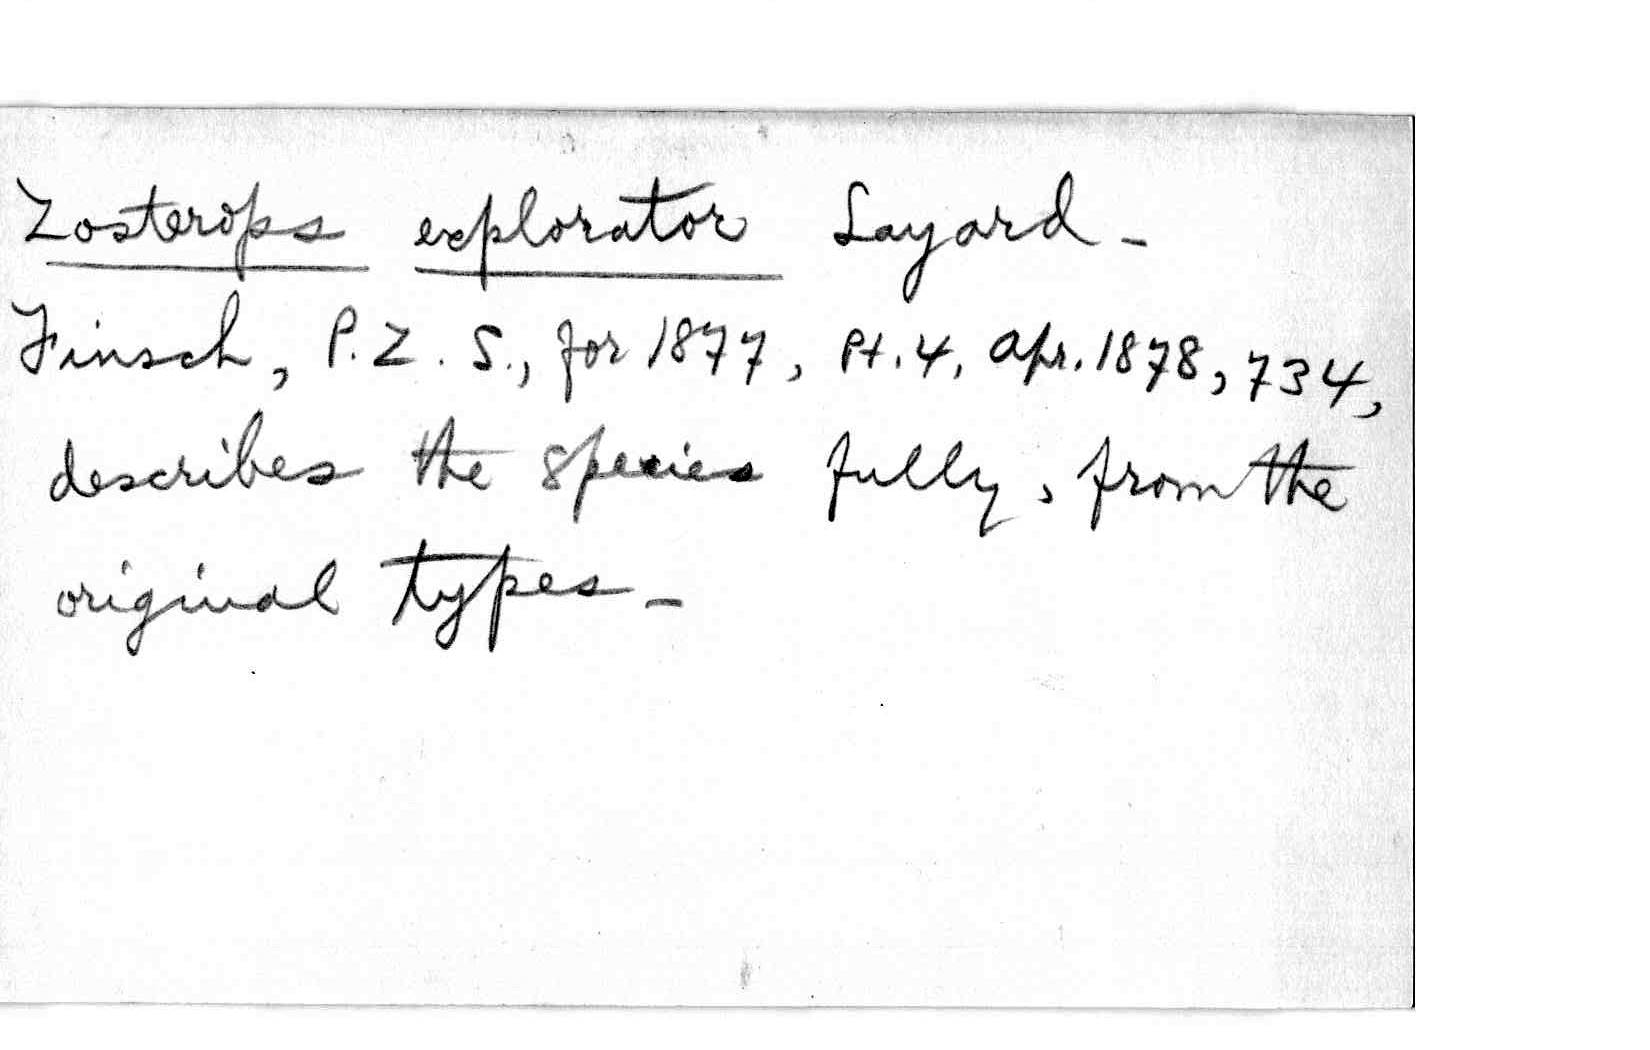 Zosterops explorator Layard -
Finsch, P.Z.S., for 1877, Pt.4, Apr. 1878, 734,
describes the species fully, from the
original types -